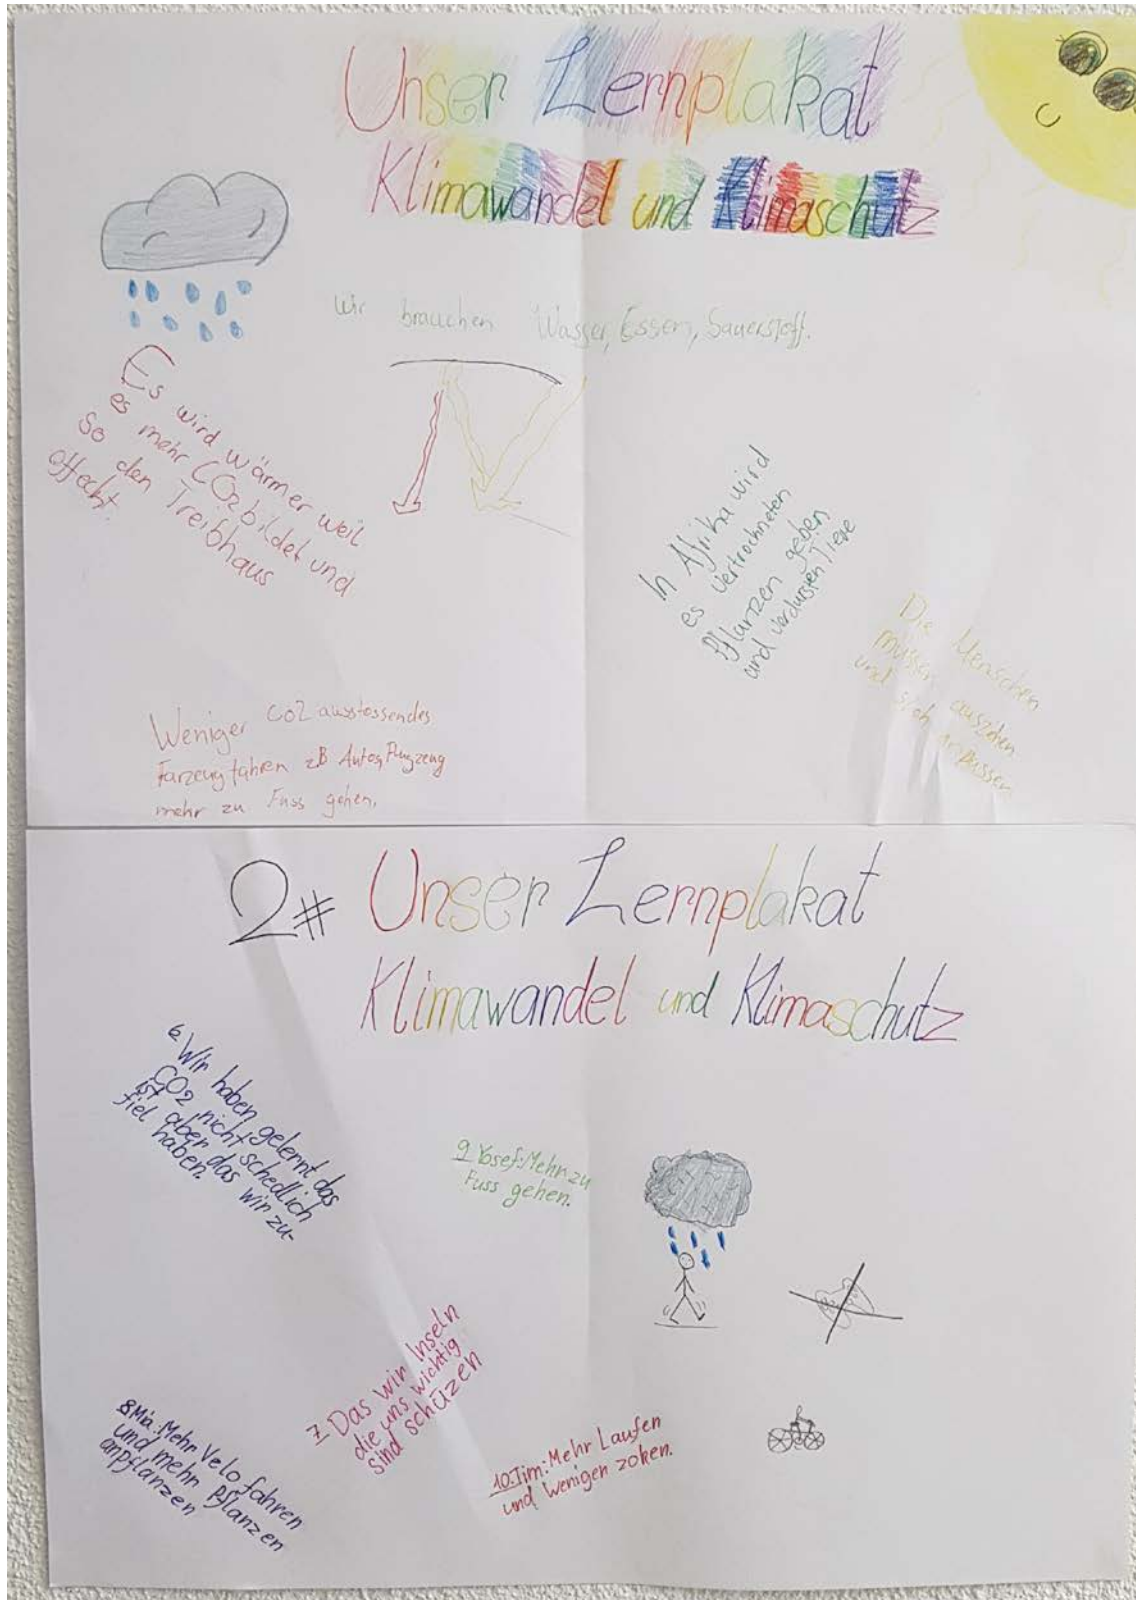 Unser Lernplakat
Klimawandel und Klimaschutz
Wir brauchen Wasser, Essen, Sauerstoff.
Es wird wärmer weil
es mehr CO2 bildet und
so den Treibhaus
offecht.
In Afrika wird
es vertrochneten
Pflanzen geben
und verdursten Tiere
Die Menschen
müssen ausziehen
und sich anpassen
Weniger CO2 ausstossendes
Farzeug fahren zB Autos, Flugzeug
mehr zu Fuss gehen.
2# Unser Lernplakat
Klimawandel und Klimaschutz
6. Wir haben gelernt das
CO2 nicht schedlich
ist aber das wir zu-
fiel haben.
9 Yosef: Mehr zu
Fuss gehen.
7 Das wir Inseln
die uns wichtig
sind schüzen
8 Mia: Mehr Velo fahren
und mehr Pflanzen
anpflanzen
10. Tim: Mehr Laufen
und Weniger zoken.